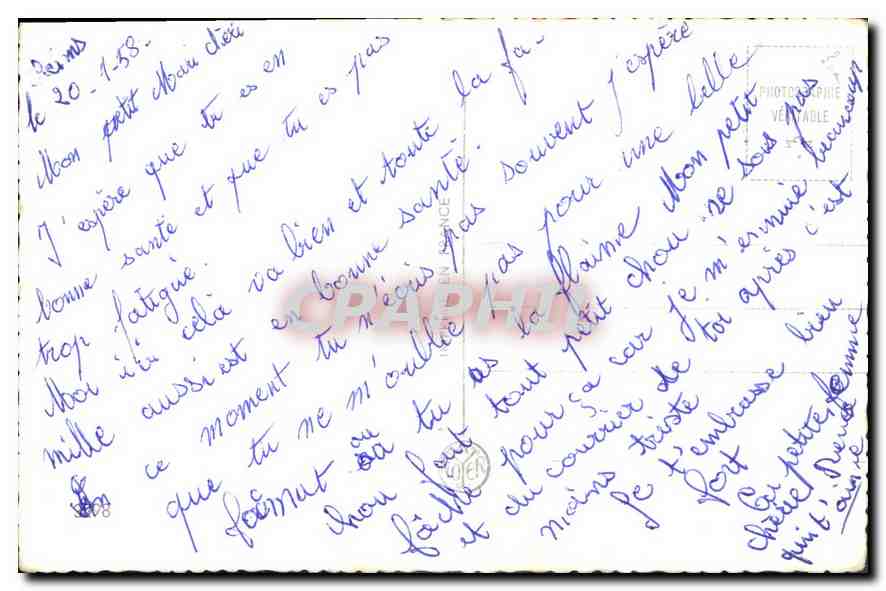 Reims
le 20-1-58.
Mon petit Mari chéri
J'espère que tu es en
bonne santé et que tu es pas
trop fatigué.
Moi ici cela va bien et toute la fa-
mille aussi est en bonne santé.
En ce moment tu n'écris pas souvent j'espère
que tu ne m'oublie pas pour une belle
ou tu as la flaime Mon petit
chou tout petit chou ne sois pas
fâché pour sa car je m'ennuie beaucoup
et du courrier de toi après c'est
moins triste
Je t'embrasse bien
fort
Ta petite femme
chérie
qui t'aime
PHOTOGRAPHIE
VÉRITABLE
EN FRANCE
CPAPHIL